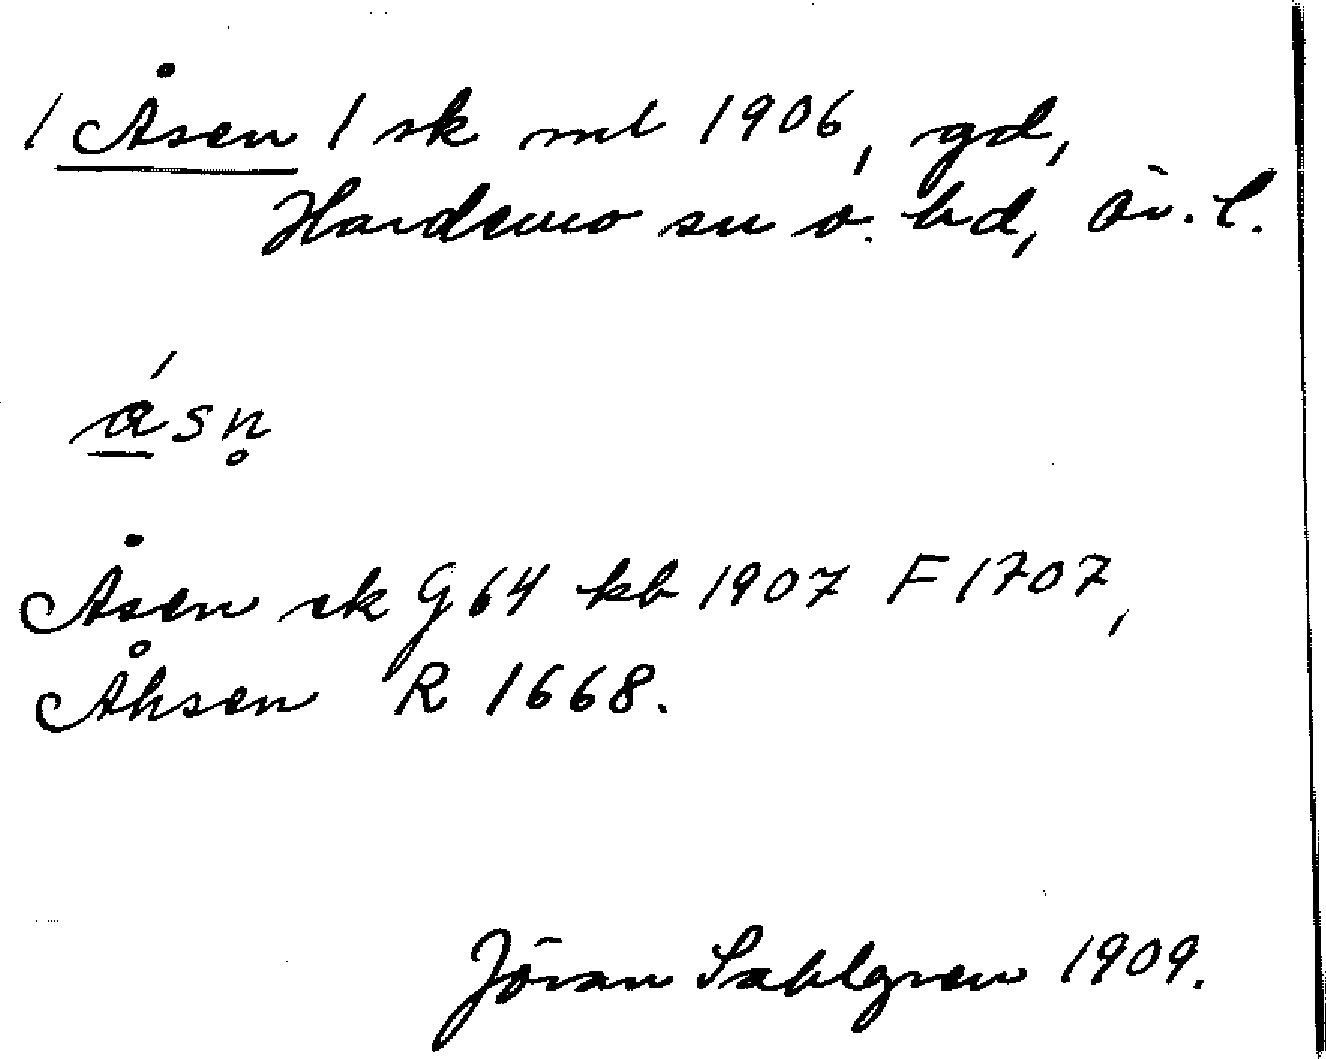 / Åsen / sk ml 1906, gd,
Hardemo sn o. hd, Ör. l.
ásn̥
Åsen sk G 64 kb 1907 F 1707,
Åhsen R 1668.
Jöran Sahlgren 1909.